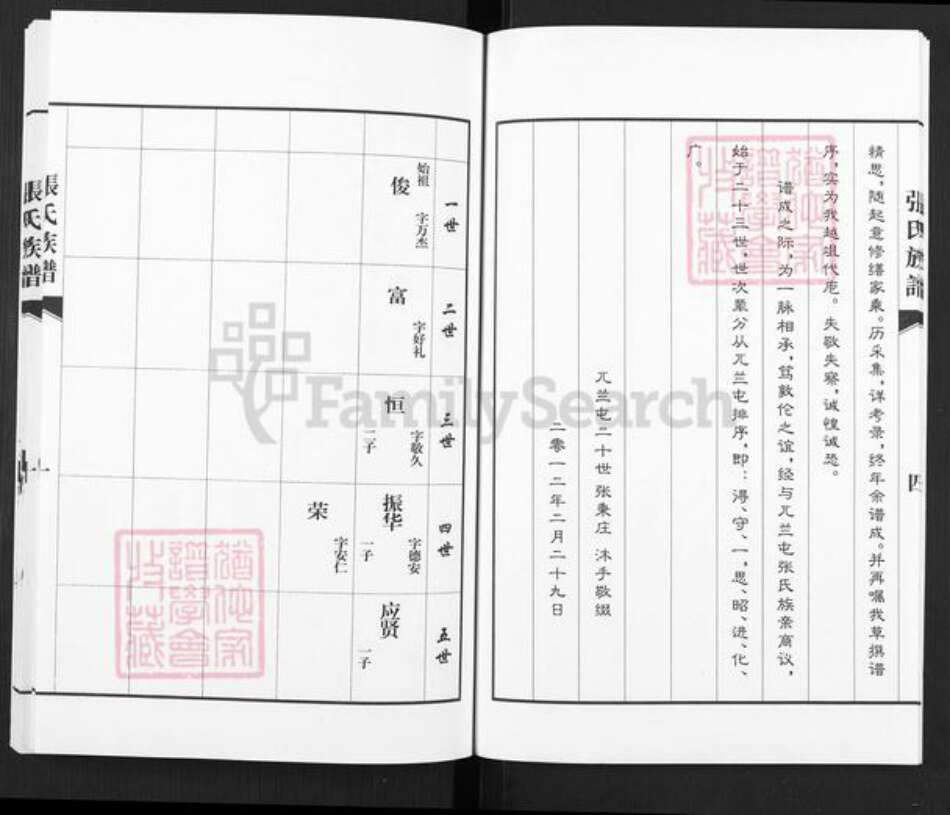 张氏族谱
四
精思，随起意修缮家乘。历采集，详考录，终年余谱成。并再嘱我草撰谱
序，实为我越祖代庖。失敬失察，诚惶诚恐。
谱成之际，为一脉相承，笃敦伦之谊，经与兀兰屯张氏族亲商议，
始于二十三世，世次辈分从兀兰屯排序，即：淂、守、一，思、昭、进、化、
广。
兀兰屯二十世 张秉庄 沐手敬缀
二零一二年二月二十九日
一世
始祖
俊
字万杰
二世
富
字好礼
三世
恒
字敬久
二子
四世
振华
字德安
一子
荣
字安仁
五世
应贤
一子
張氏族谱
張氏族谱
FamilySearch
猶他家譜學會收藏
猶他家譜學會收藏